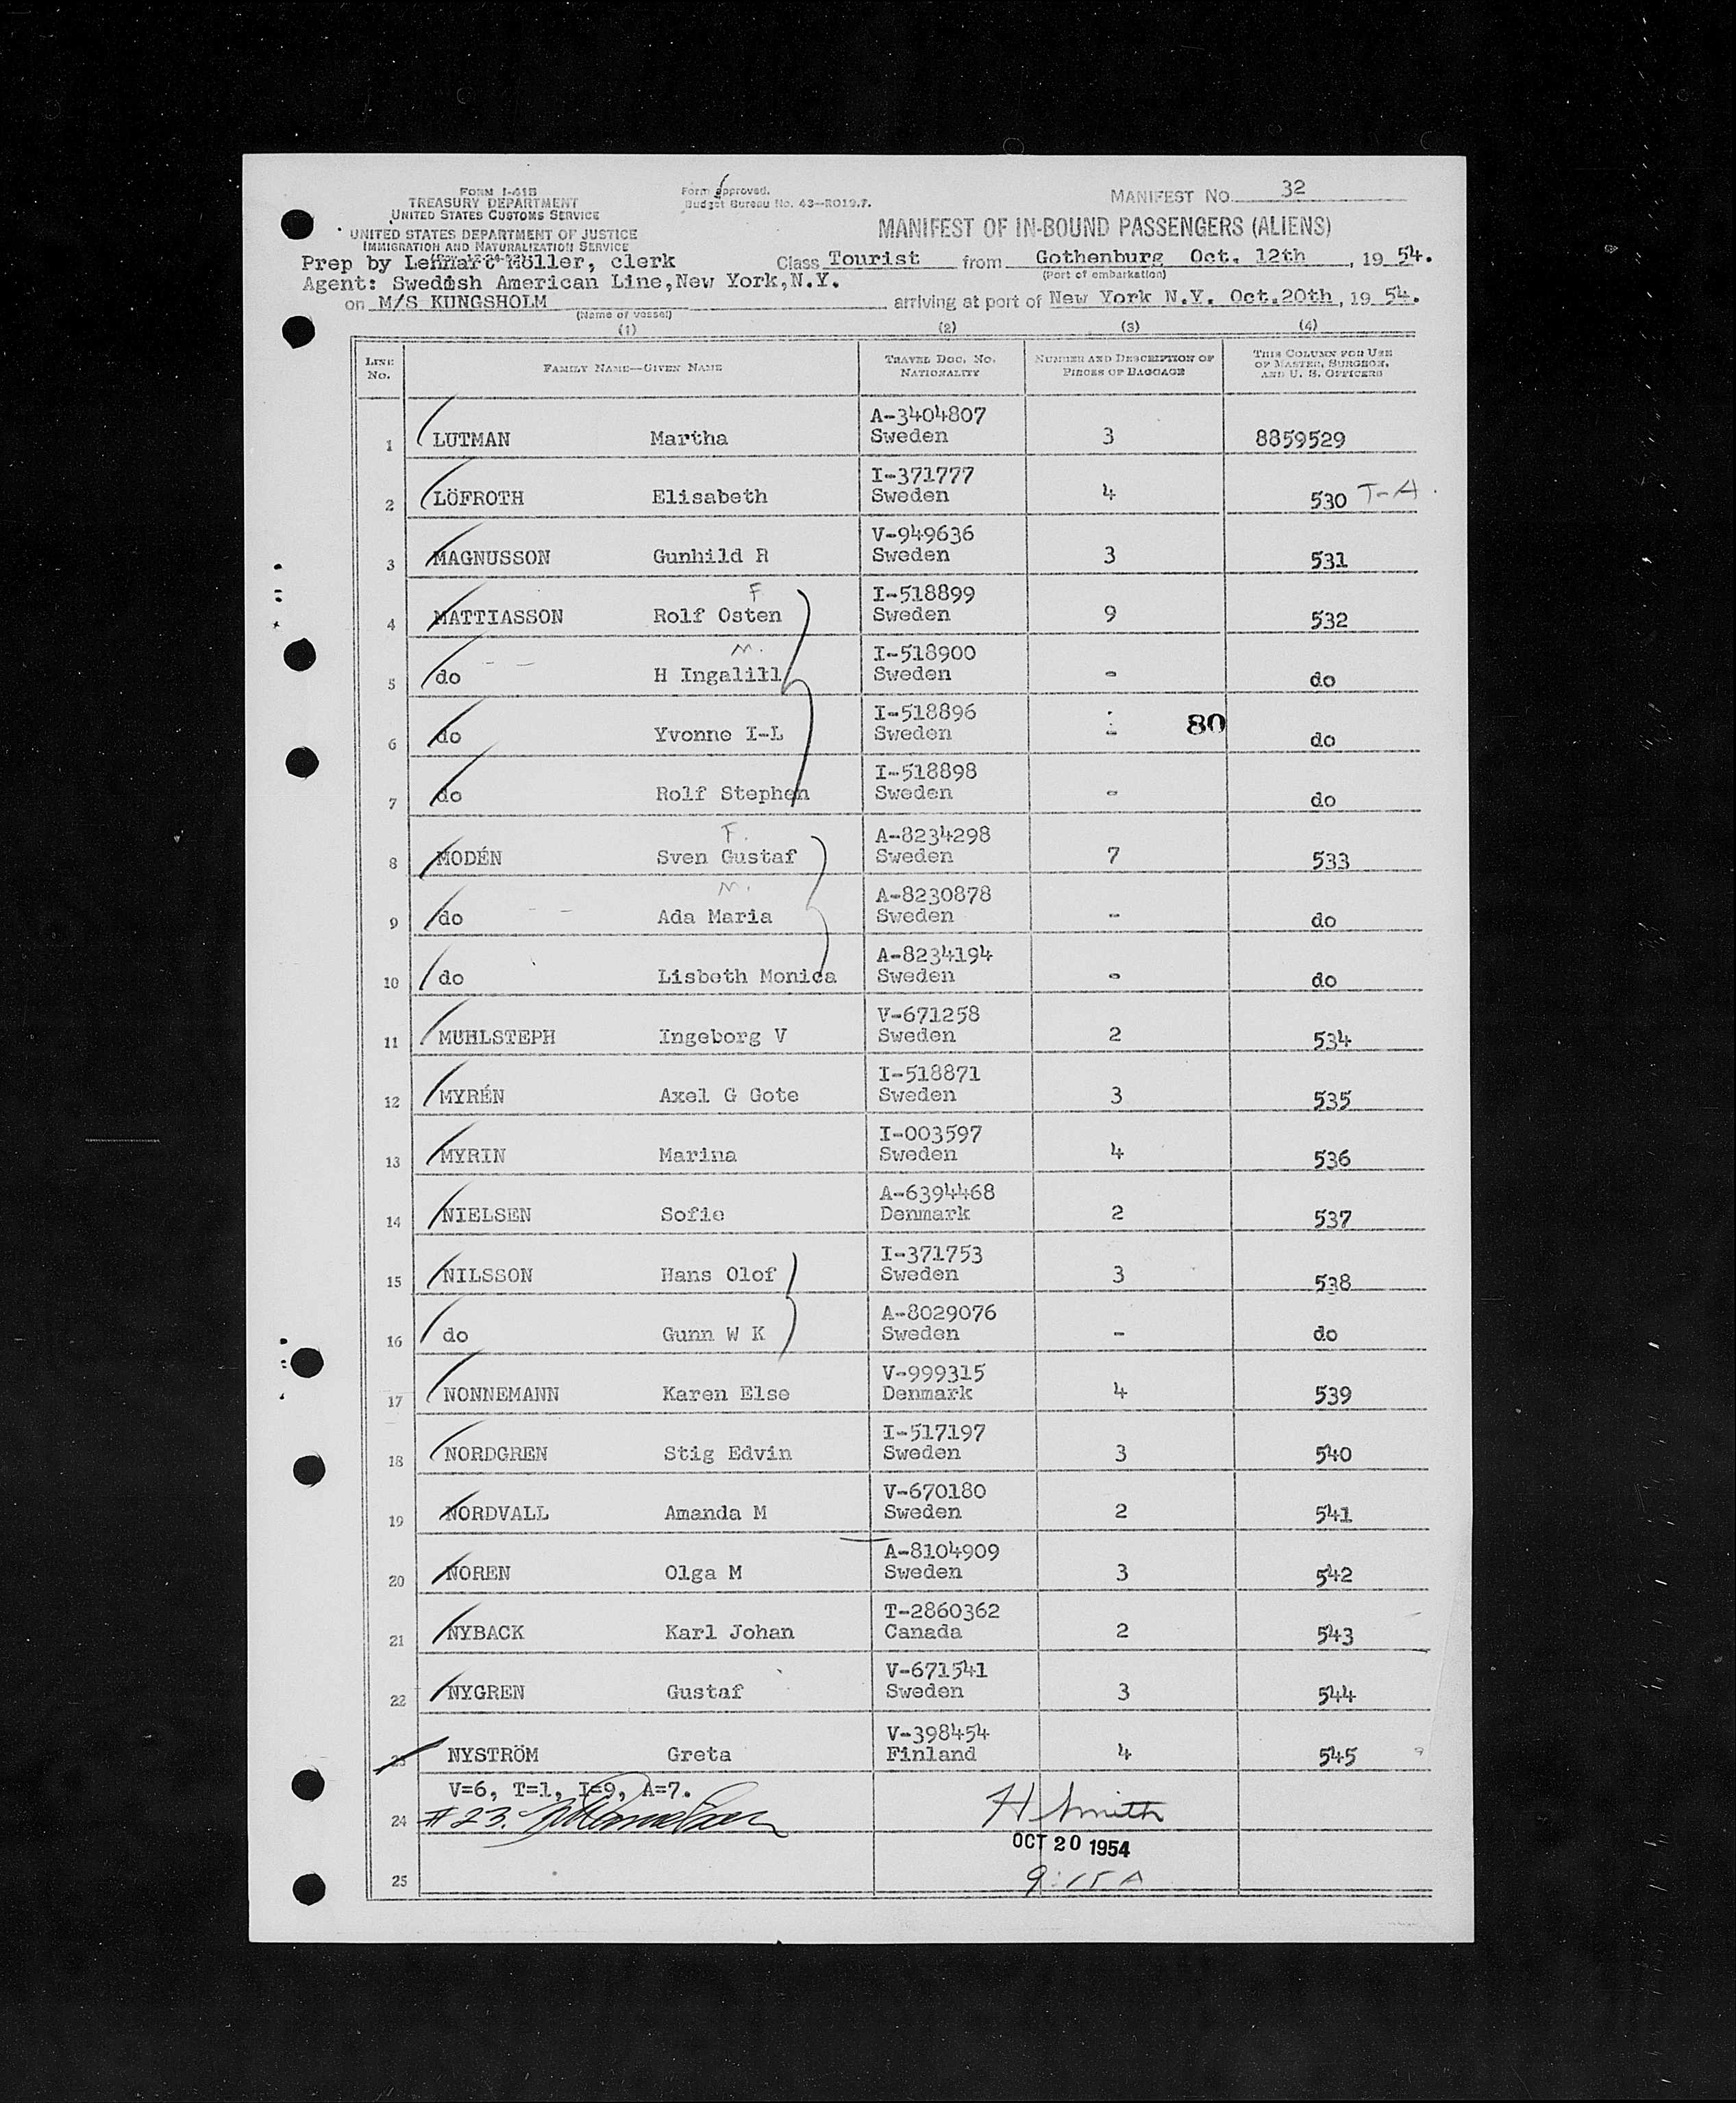 FORM I-418
TREASURY DEPARTMENT
UNITED STATES CUSTOMS SERVICE
UNITED STATES DEPARTMENT OF JUSTICE
IMMIGRATION AND NATURALIZATION SERVICE
Form approved.
Budget Bureau No. 43-R019.7.
MANIFEST NO. 32
MANIFEST OF IN-BOUND PASSENGERS (ALIENS)
Prep by Lennart Möller, clerk Class Tourist from Gothenburg Oct. 12th, 19 54.
(Port of embarkation)
Agent: Swedish American Line, New York, N.Y.
on M/S KUNGSHOLM arriving at port of New York N.Y. Oct.20th, 19 54.
(Name of vessel)
(1) (2) (3) (4)
LINE No. FAMILY NAME—GIVEN NAME TRAVEL DOC. NO. NATIONALITY NUMBER AND DESCRIPTION OF PIECES OF BAGGAGE THIS COLUMN FOR USE OF MASTER, SURGEON, AND U. S. OFFICERS
1 LUTMAN Martha A-3404807 Sweden 3 8859529
2 LÖFROTH Elisabeth I-371777 Sweden 4 530 T-A.
3 MAGNUSSON Gunhild R V-949636 Sweden 3 531
F
4 MATTIASSON Rolf Osten I-518899 Sweden 9 532
M.
5 do - - H Ingalill I-518900 Sweden - do
6 do Yvonne I-L I-518896 Sweden - 80 do
7 do Rolf Stephen I-518898 Sweden - do
F.
8 MODÉN Sven Gustaf A-8234298 Sweden 7 533
M.
9 do - - Ada Maria A-8230878 Sweden - do
10 do Lisbeth Monica A-8234194 Sweden - do
11 MUHLSTEPH Ingeborg V V-671258 Sweden 2 534
12 MYRÉN Axel G Gote I-518871 Sweden 3 535
13 MYRIN Marina I-003597 Sweden 4 536
14 NIELSEN Sofie A-6394468 Denmark 2 537
15 NILSSON Hans Olof I-371753 Sweden 3 538
16 do Gunn W K A-8029076 Sweden - do
17 NONNEMANN Karen Else V-999315 Denmark 4 539
18 NORDGREN Stig Edvin I-517197 Sweden 3 540
19 NORDVALL Amanda M V-670180 Sweden 2 541
20 NOREN Olga M A-8104909 Sweden 3 542
21 NYBACK Karl Johan T-2860362 Canada 2 543
22 NYGREN Gustaf V-671541 Sweden 3 544
23 NYSTRÖM Greta V-398454 Finland 4 545
V=6, T=1, I=9, A=7.
24 #23. H Smith
OCT 20 1954
25 9:15 A